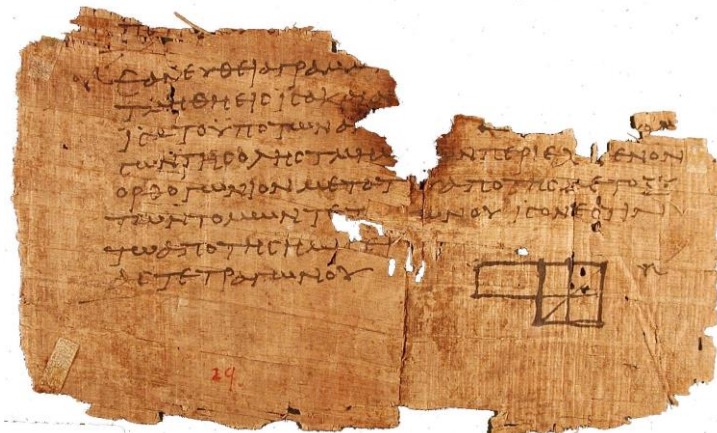 ΕΑΝ ΕΥΘΕΙΑ ΓΡΑΜΜ
ΤΜΗΘΗ ΕΙϹ ΙϹΑ Κ
ΙϹΑ ΤΟ ΥΠΟ ΤΩΝ ΑΝ
ϹΩΝ ΤΗϹ ΟΛΗϹ ΤΜΗ ΩΝ ΠΕΡΙΕΧ ΜΕΝΟΝ
ΟΡΘΟΓΩΝΙΟΝ ΜΕΤΑ ΤΟΥ ΑΠΟ ΤΗϹ ΜΕΤΟΞΥ
ΤΩΝ ΤΟΜΩΝ ΤΕΤ ΩΝΟΥ ΙϹΟΝ ΕϹΤΙΝ
ΤΩ ΑΠΟ ΤΗϹ ΗΜΙϹΕΙ
ΑϹ ΤΕΤΡΑΓΩΝΟΥ
29